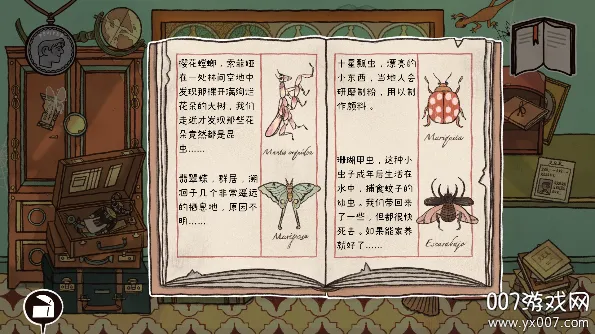 樱花螳螂，索菲娅
在一处林间空地中
发现那棵开满绚烂
花朵的大树，我们
走近才发现那些花
朵竟然都是昆
虫……
Mantis orquidea
翡翠蝶，群居，溯
洄子几个非常遥远
的栖息地，原因不
明……
Mariposa
十星瓢虫，漂亮的
小东西，当地人会
研磨制粉，用以制
作颜料。
Mariquita
珊瑚甲虫，这种小
虫子成年后生活在
水中，捕食蚊子的
幼虫。我们带回来
了一些，但都很快
死去。如果能家养
就好了……
Escarabajo
007游戏网
www.yx007.com